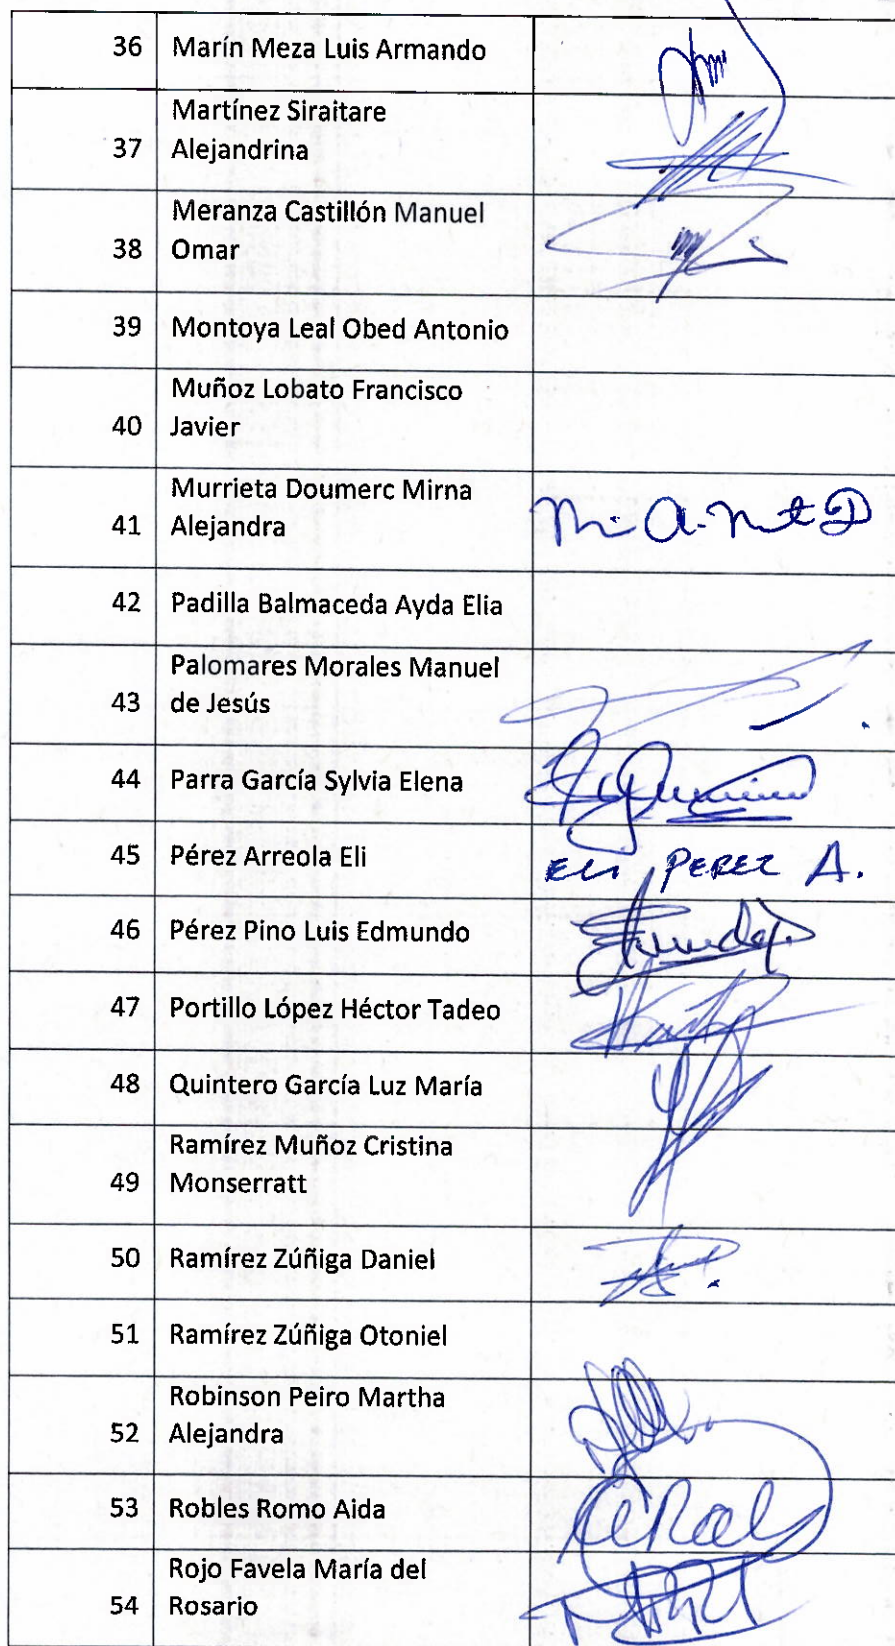 36 Marín Meza Luis Armando
Martínez Siraitare
37 Alejandrina
Meranza Castillón Manuel
38 Omar
39 Montoya Leal Obed Antonio
Muñoz Lobato Francisco
40 Javier
Murrieta Doumerc Mirna
41 Alejandra
42 Padilla Balmaceda Ayda Elia
Palomares Morales Manuel
43 de Jesús
44 Parra García Sylvia Elena
45 Pérez Arreola Eli ELI PEREZ A.
46 Pérez Pino Luis Edmundo
47 Portillo López Héctor Tadeo
48 Quintero García Luz María
Ramírez Muñoz Cristina
49 Monserratt
50 Ramírez Zúñiga Daniel
51 Ramírez Zúñiga Otoniel
Robinson Peiro Martha
52 Alejandra
53 Robles Romo Aida
Rojo Favela María del
54 Rosario